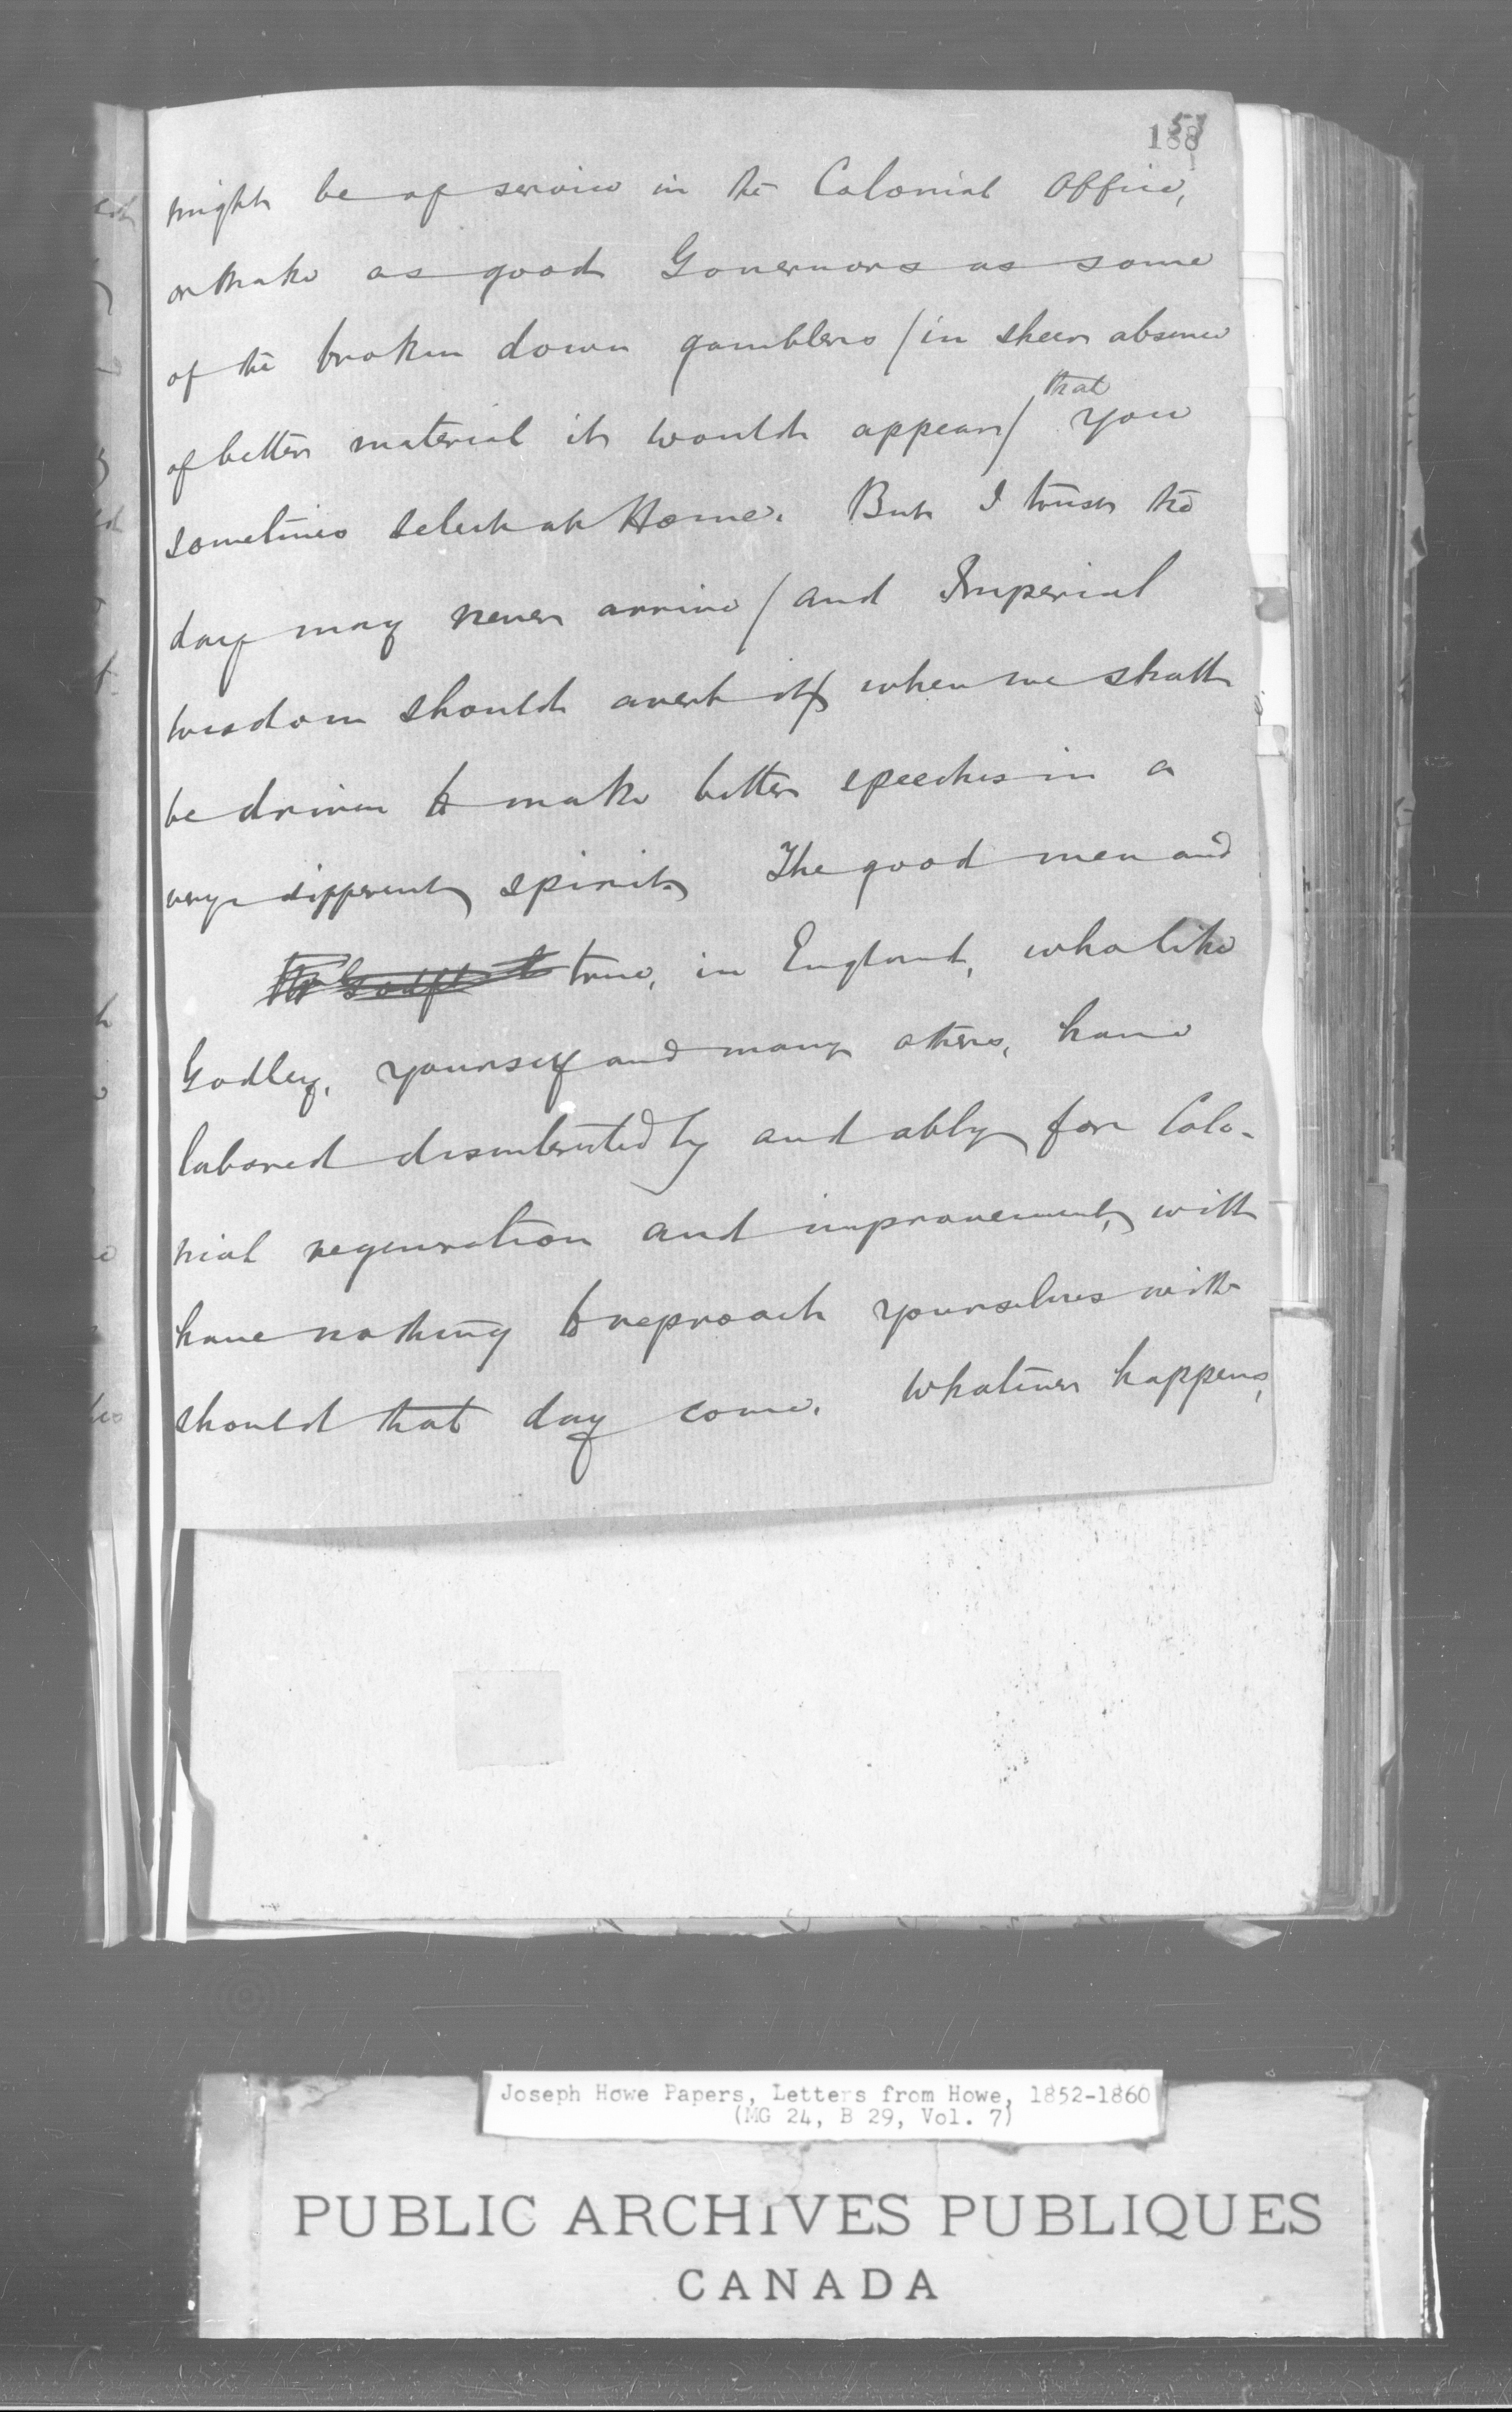 188
57
might be of service in the Colonial Office,
or make as good Governors as some
of the broken down gamblers / in sheer absence
that
of better material it would appear / you
sometimes select at Home. But I trust the
day may never arrive / and Imperial
wisdom should avert it / when we shall
be driven to make better speeches in a
very different spirit. The good men and
true, in England, who like
Godley, yourself and many others, have
labored disinterestedly and ably for Colo-
nial regeneration and improvement, will
have nothing to reproach yourselves with
should that day come. Whatever happens,
Joseph Howe Papers, Letters from Howe, 1852-1860
(MG 24, B 29, Vol. 7)
PUBLIC ARCHIVES PUBLIQUES
CANADA